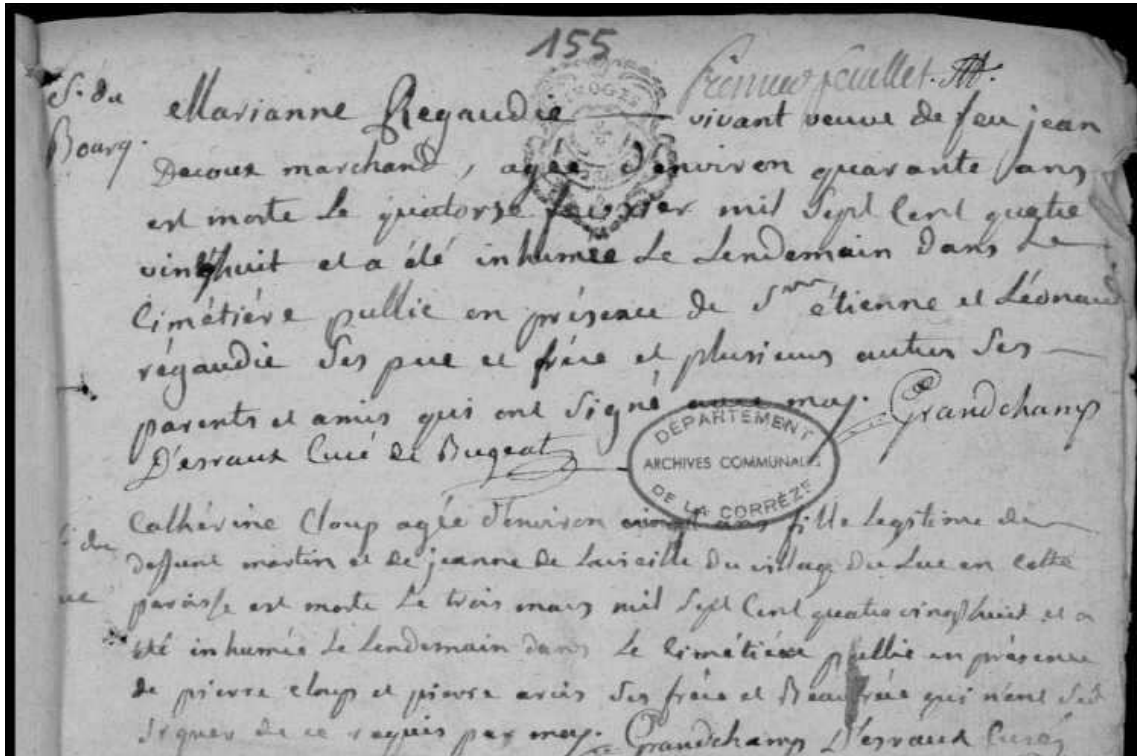 155
Premier feuillet.
S. du
Bourg.
Marianne Regaudie vivant veuve de feu jean
Decoux marchand, agée d'environ quarante ans
est morte Le quatorze fevrier mil Sept Cent quatre
vingt huit et a été inhumée Le Lendemain dans Le
Cimétiére public en présence de Srs étienne et Léonard
régaudie Ses pere et frére et plusieurs autres Ses
parents et amis qui ont Signé avec moy. Grandchamp
D'esvaux Curé de Bugeat
DÉPARTEMENT
ARCHIVES COMMUNALES
DE LA CORRÈZE
Cathérine Cloup agée d'environ ans fille Legitime de
deffunt martin et de jeanne de Lavieille du village du Luc en cette
paroisse est morte Le trois mars mil Sept Cent quatre vingt huit et a
été inhumée Le Lendemain dans Le Cimétiére public en présence
de pierre Cloup et pierre Ses frére et Beaufrére qui n'ont Sçû
Signer de ce requis par moy. Grandchamp D'esvaux Curé